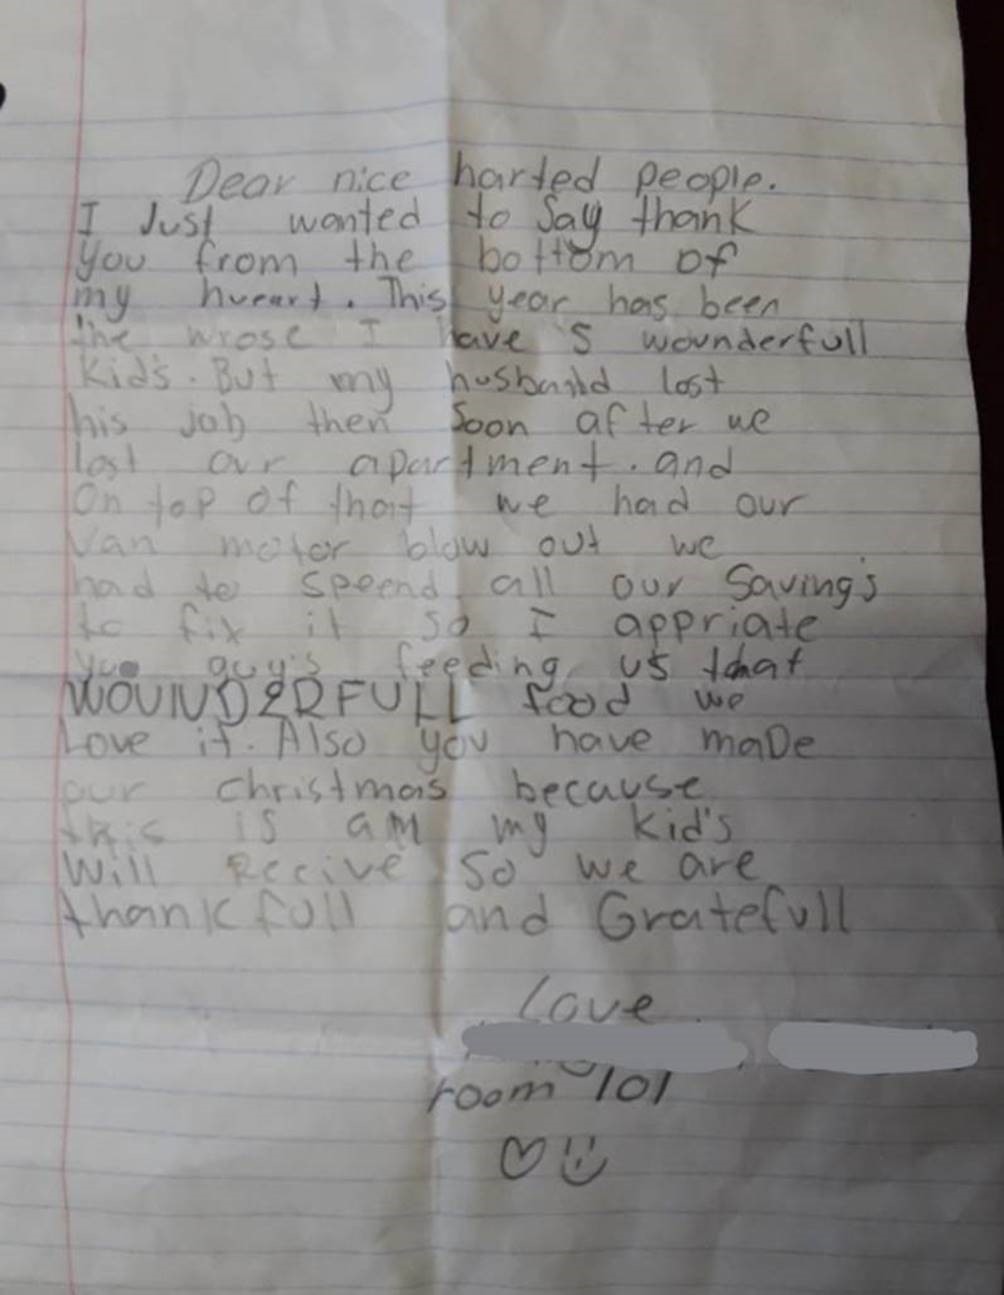 Dear nice harted people.
I Just wanted to Say thank
you from the bottom of
my hueart. This year has been
the wrose I have 5 wounderfull
Kid's. But my husband lost
his job then Soon after we
lost our apartment. and
On top of that we had our
Van motor blow out we
had to speend all our Saving's
to fix it so I appriate
you guy's feeding us that
WOUNDERFULL food we
Love it. Also you have maDe
our christmas because
this is am my Kid's
Will Recive So we are
thankfull and Gratefull
Love
room 101